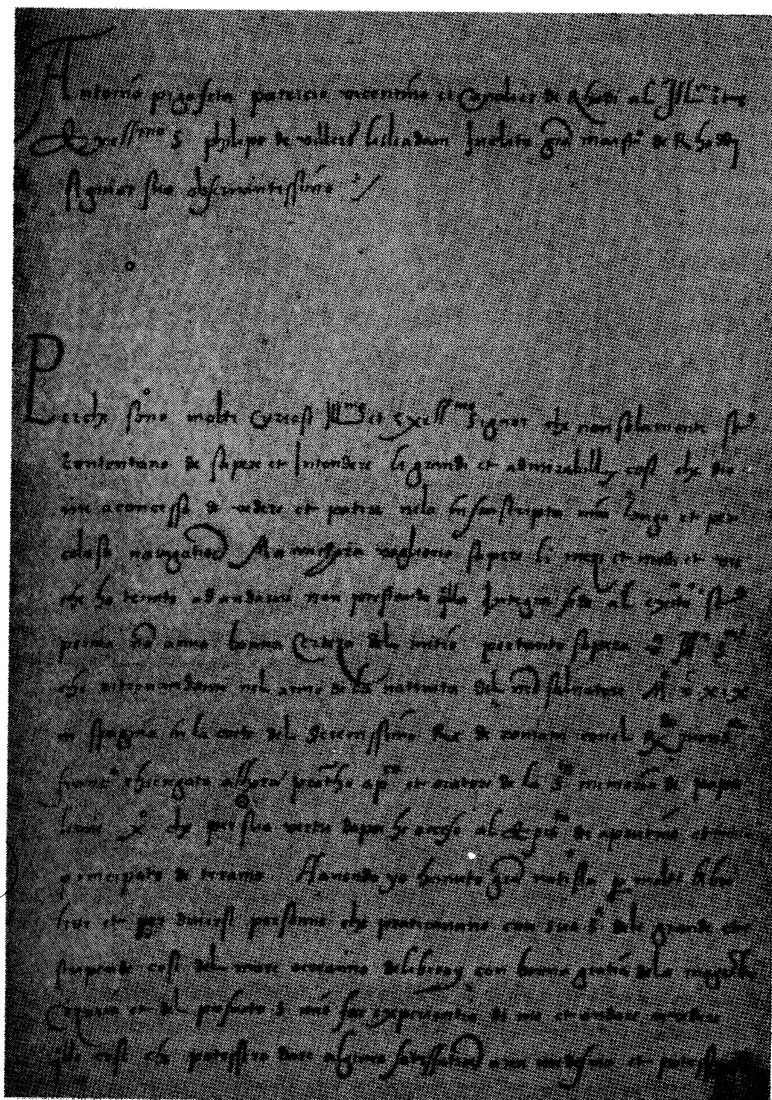 Antonio pigafeta patricio vicentino et Caualier de Rhodi al Ill^mo et
Exellentissimo S. philipo de villers lisleadam Inclito grā maisto de Rhoddi
signior suo osseruantissimo
Perche sonno molti curiosi Ill^mo et exell^mo signor che non solamente se
contentano de sapere et Intendere li grandi et admirabilli cosi che dio
me a concesso de vedere et patire nela infrascripta mia longa et peri
colosa nauigatiō Ma anchora vogliono sapere li mezi et modi et vie
che ho tenuto ad andarui non prestando qlla Integra fede al exito se
prima nō anno bonna certeza del initio pertanto sapera vr̄a Ill^ma S^ria
che ritrouandome nel anno de la natiuita del nr̄o saluatore M D xix
in spagnia in la corte del serenissimo Re de romani con el R^do mons^or
franc^o chieregato alhora protho ap^co et oratore de la S^ta memoria de papa
leone x^o che per sua vertu dapoi he acceso al episto de aprutino et
principato de teramo Hauendo yo hauuto grā notisia per molti libri
letti et per diuersi personne che praticauano con sua s^a dele grande et
stupende cosi del mare occeanno deliberay con bonna gratia dela magesta
Cezaria et del prefacto S. mio far experientia di me et andare a vedere
quelle cosi che potessero dare alguna satisfatiō a me medesmo et potessero